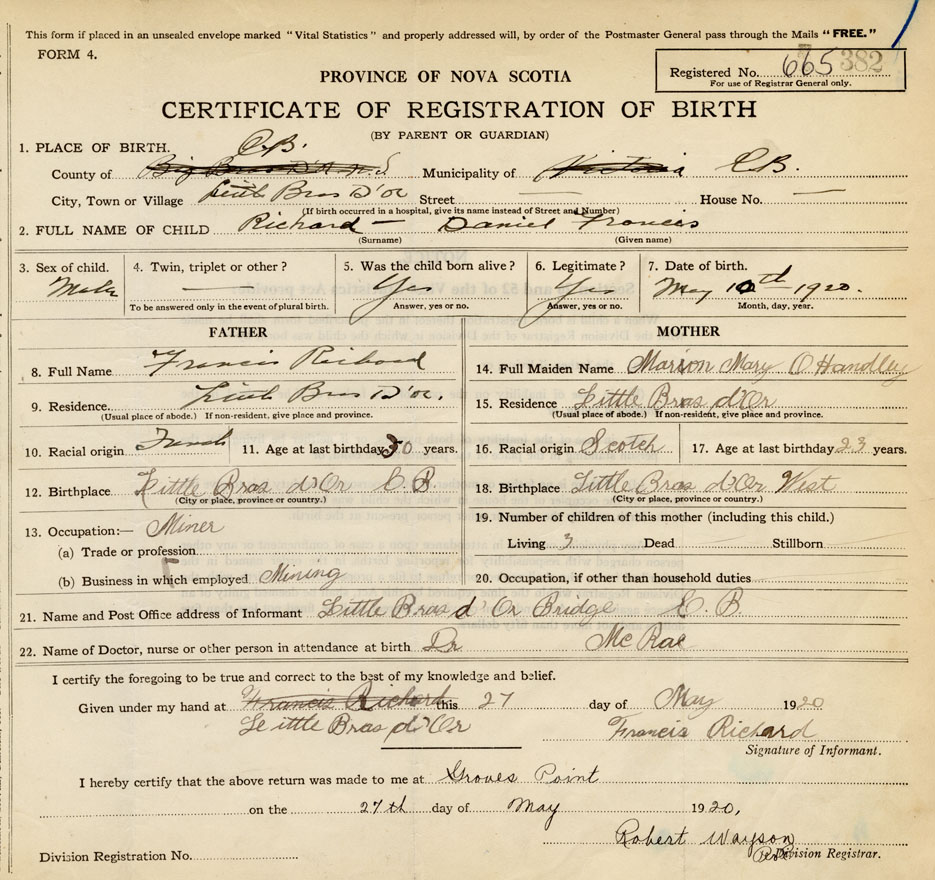 This form if placed in an unsealed envelope marked "Vital Statistics" and properly addressed will, by order of the Postmaster General pass through the Mails "FREE."
FORM 4.
Registered No. 665 382
For use of Registrar General only.
PROVINCE OF NOVA SCOTIA
CERTIFICATE OF REGISTRATION OF BIRTH
(BY PARENT OR GUARDIAN)
1. PLACE OF BIRTH. C.B.
County of Big Bras D'Or N.S Municipality of Victoria C.B.
City, Town or Village Little Bras D'or Street — House No. —
(If birth occurred in a hospital, give its name instead of Street and Number)
2. FULL NAME OF CHILD Richard — Daniel Francis
(Surname) (Given name)
3. Sex of child. 4. Twin, triplet or other? 5. Was the child born alive? 6. Legitimate? 7. Date of birth.
Male — Yes Yes May 10th 1920.
To be answered only in the event of plural birth. Answer, yes or no. Answer, yes or no. Month, day, year.
FATHER MOTHER
8. Full Name Francis Richard 14. Full Maiden Name Marion Mary O'Handley
9. Residence. Little Bras D'or. 15. Residence Little Bras d'Or
(Usual place of abode.) If non-resident, give place and province. (Usual place of abode.) If non-resident, give place and province.
10. Racial origin French 11. Age at last birthday 30 years. 16. Racial origin Scotch 17. Age at last birthday 23 years.
12. Birthplace Little Bras d'Or C B 18. Birthplace Little Bras d'Or West
(City or place, province or country.) (City or place, province or country.)
13. Occupation:— Miner 19. Number of children of this mother (including this child.)
(a) Trade or profession Living 3 Dead Stillborn
(b) Business in which employed Mining 20. Occupation, if other than household duties
21. Name and Post Office address of Informant Little Bras d'Or Bridge C. B
22. Name of Doctor, nurse or other person in attendance at birth Dr McRae
I certify the foregoing to be true and correct to the best of my knowledge and belief.
Given under my hand at Francis Richard this 27 day of May 1920
Little Bras d'Or Francis Richard
Signature of Informant.
I hereby certify that the above return was made to me at Groves Point
on the 27th day of May 1920,
Robert Wayson
Division Registrar.
Division Registration No.